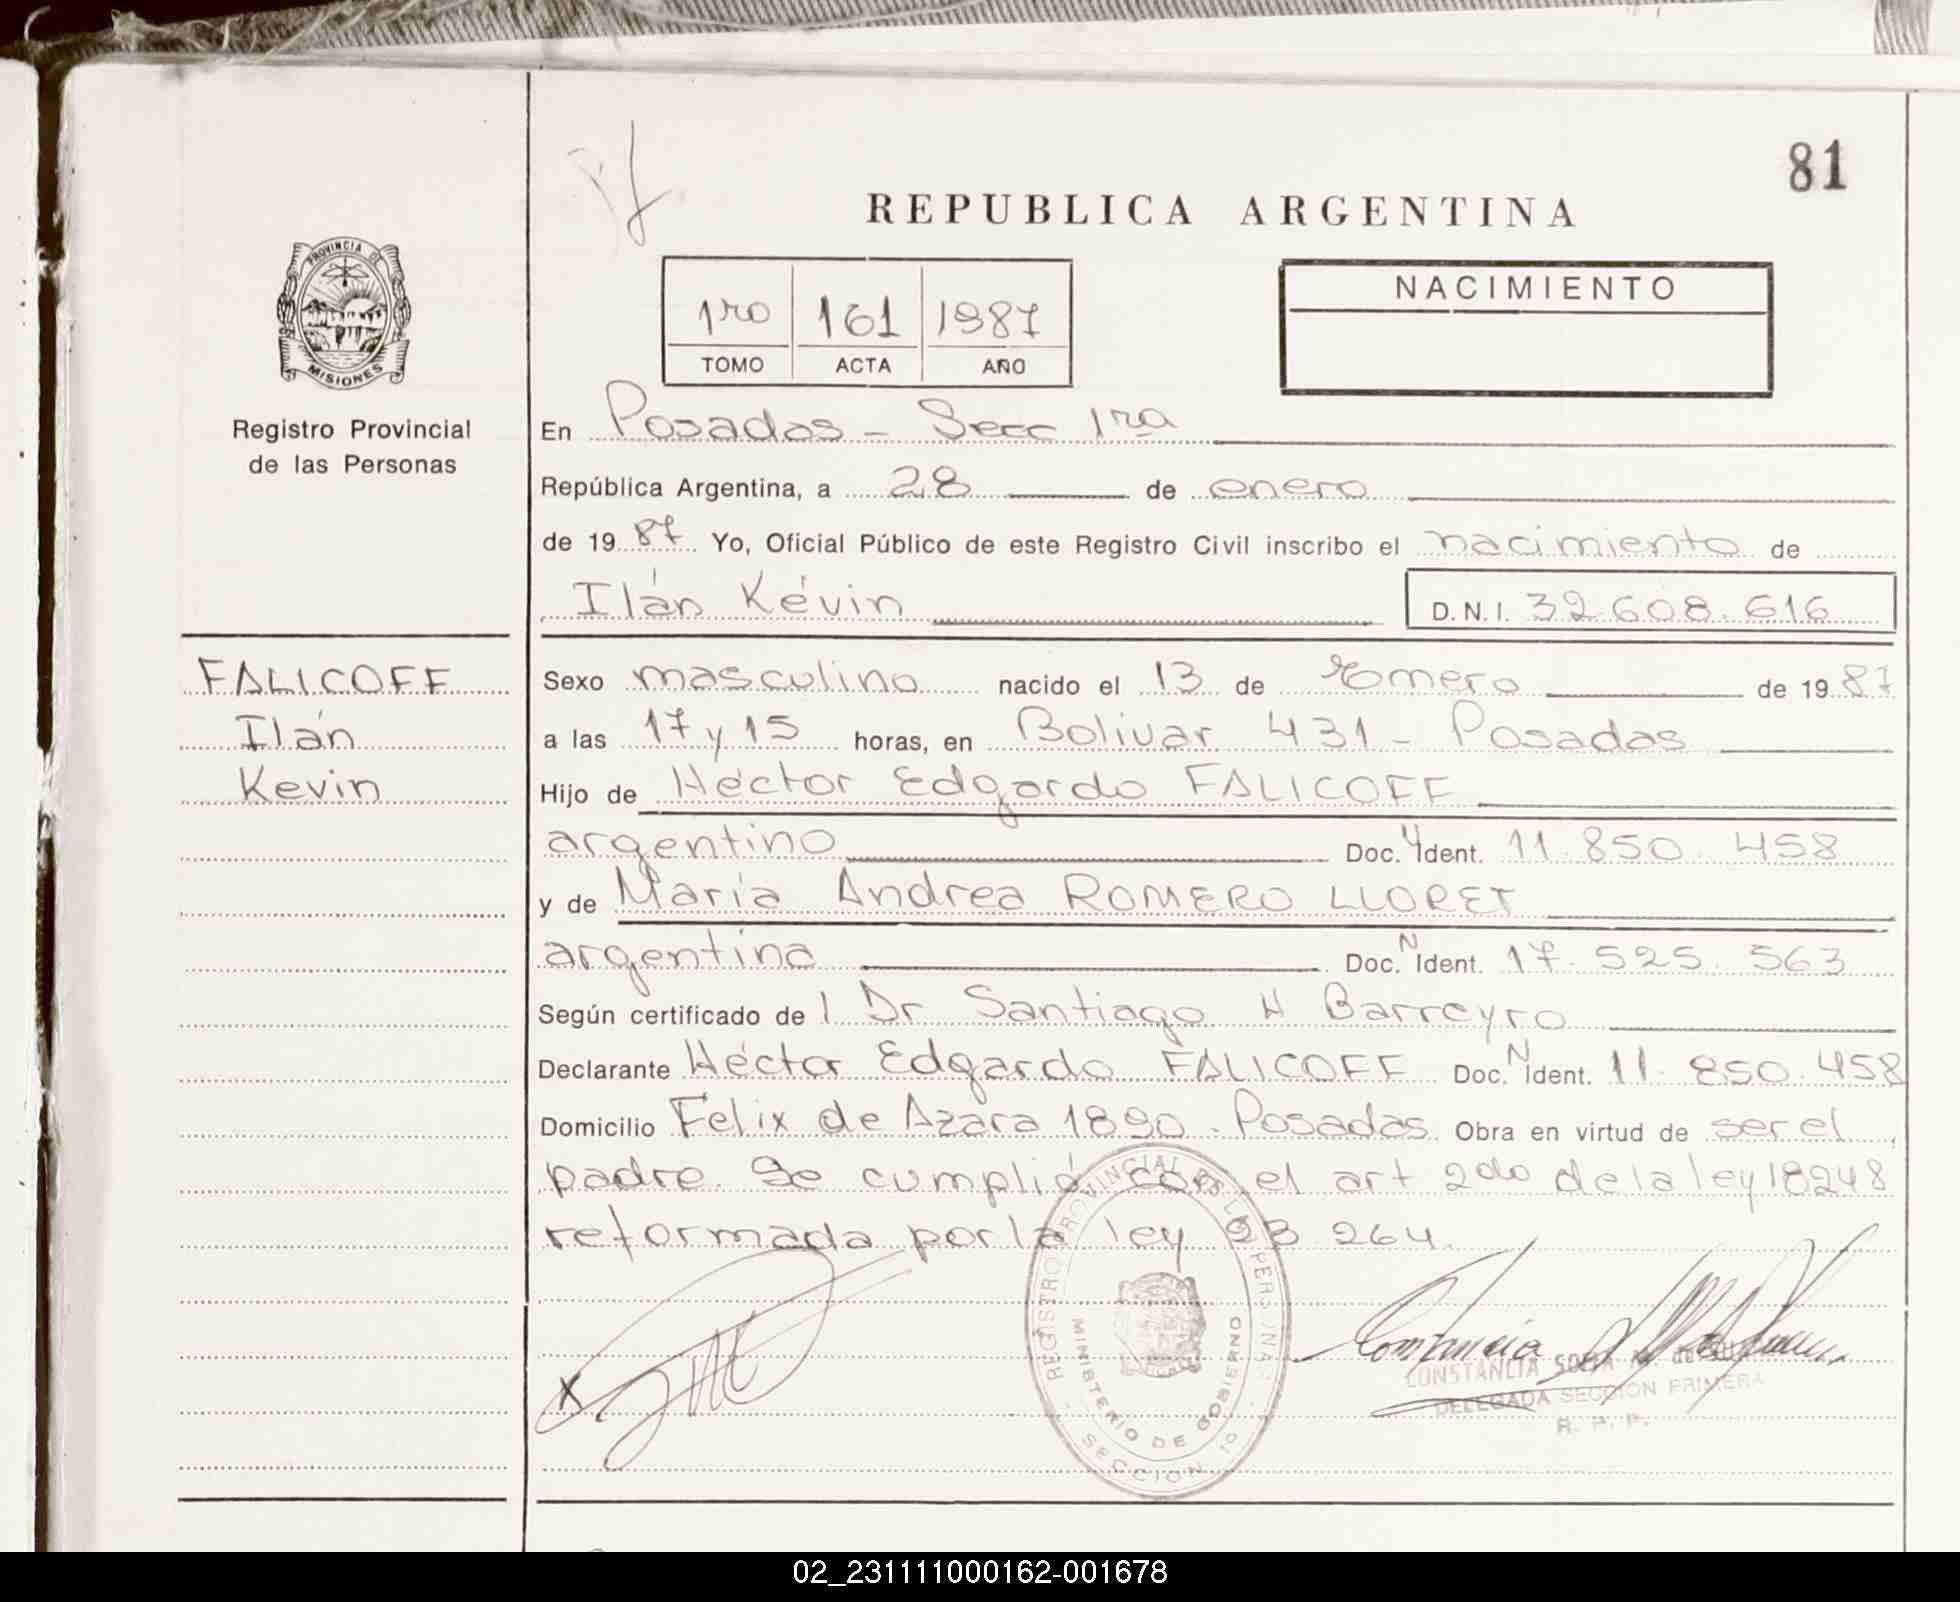 81
REPUBLICA ARGENTINA
PROVINCIA DE
MISIONES
Registro Provincial
de las Personas
1ro 161 1987
TOMO ACTA AÑO
NACIMIENTO
En Posadas - Secc 1ra
República Argentina, a 28 de enero
de 19 87 Yo, Oficial Público de este Registro Civil inscribo el nacimiento de
Ilán Kévin D.N.I. 32.608.616
FALICOFF
Ilán
Kevin
Sexo masculino nacido el 13 de de 19 87
a las 17 y 15 horas, en Bolivar 431 - Posadas
Hijo de Héctor Edgardo FALICOFF
argentino Doc. Ident. 11.850.458
y de María Andrea ROMERO LLORET
argentina Doc. N Ident. 17.525.563
Según certificado de l Dr Santiago H Barreyro
Declarante Héctor Edgardo FALICOFF Doc. N Ident. 11.850.458
Domicilio Felix de Azara 1890. Posadas. Obra en virtud de ser el
padre. Se cumplió con el art 2do de la ley 18248
reformada por la ley 23 264.
REGISTRO PROVINCIAL DE LAS PERSONAS
MINISTERIO DE GOBIERNO
SECCION 1a
X
Constancia
CONSTANCIA SOFIA de
DELEGADA SECCION PRIMERA
R. P. P.
02_231111000162-001678